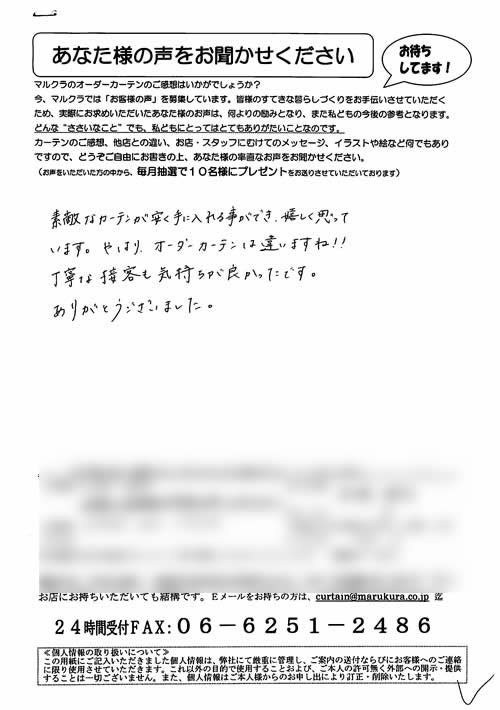 あなた様の声をお聞かせください
お待ち
してます!
マルクラのオーダーカーテンのご感想はいかがでしょうか?
今、マルクラでは「お客様の声」を募集しています。皆様のすてきな暮らしづくりをお手伝いさせていただく
ため、実際にお求めいただいたあなた様のお声は、何よりの励みとなり、また私どもの今後の参考となります。
どんな“ささいなこと”でも、私どもにとってはとてもありがたいことなのです。
カーテンのご感想、他店との違い、お店・スタッフにむけてのメッセージ、イラストや絵など何でもあり
ですので、どうぞご自由にお書きの上、あなた様の率直なお声をお聞かせください。
(お声をいただいた方の中から、毎月抽選で10名様にプレゼントをお送りさせていただいております)
素敵なカーテンが安く手に入れる事ができ、嬉しく思って
います。やはり、オーダーカーテンは違いますね!!
丁寧な接客も気持ちが良かったです。
ありがとうございました。
お店にお持ちいただいても結構です。Eメールをお持ちの方は、curtain@marukura.co.jp 迄
24時間受付FAX:06-6251-2486
≪個人情報の取り扱いについて≫
この用紙にご記入いただきました個人情報は、弊社にて厳重に管理し、ご案内の送付ならびにお客様へのご連絡
に限り使用させていただきます。これ以外の目的で使用することおよび、ご本人の許可無く外部への開示・提供
することは一切ございません。また、個人情報はご本人様からのお申し出により訂正・削除いたします。